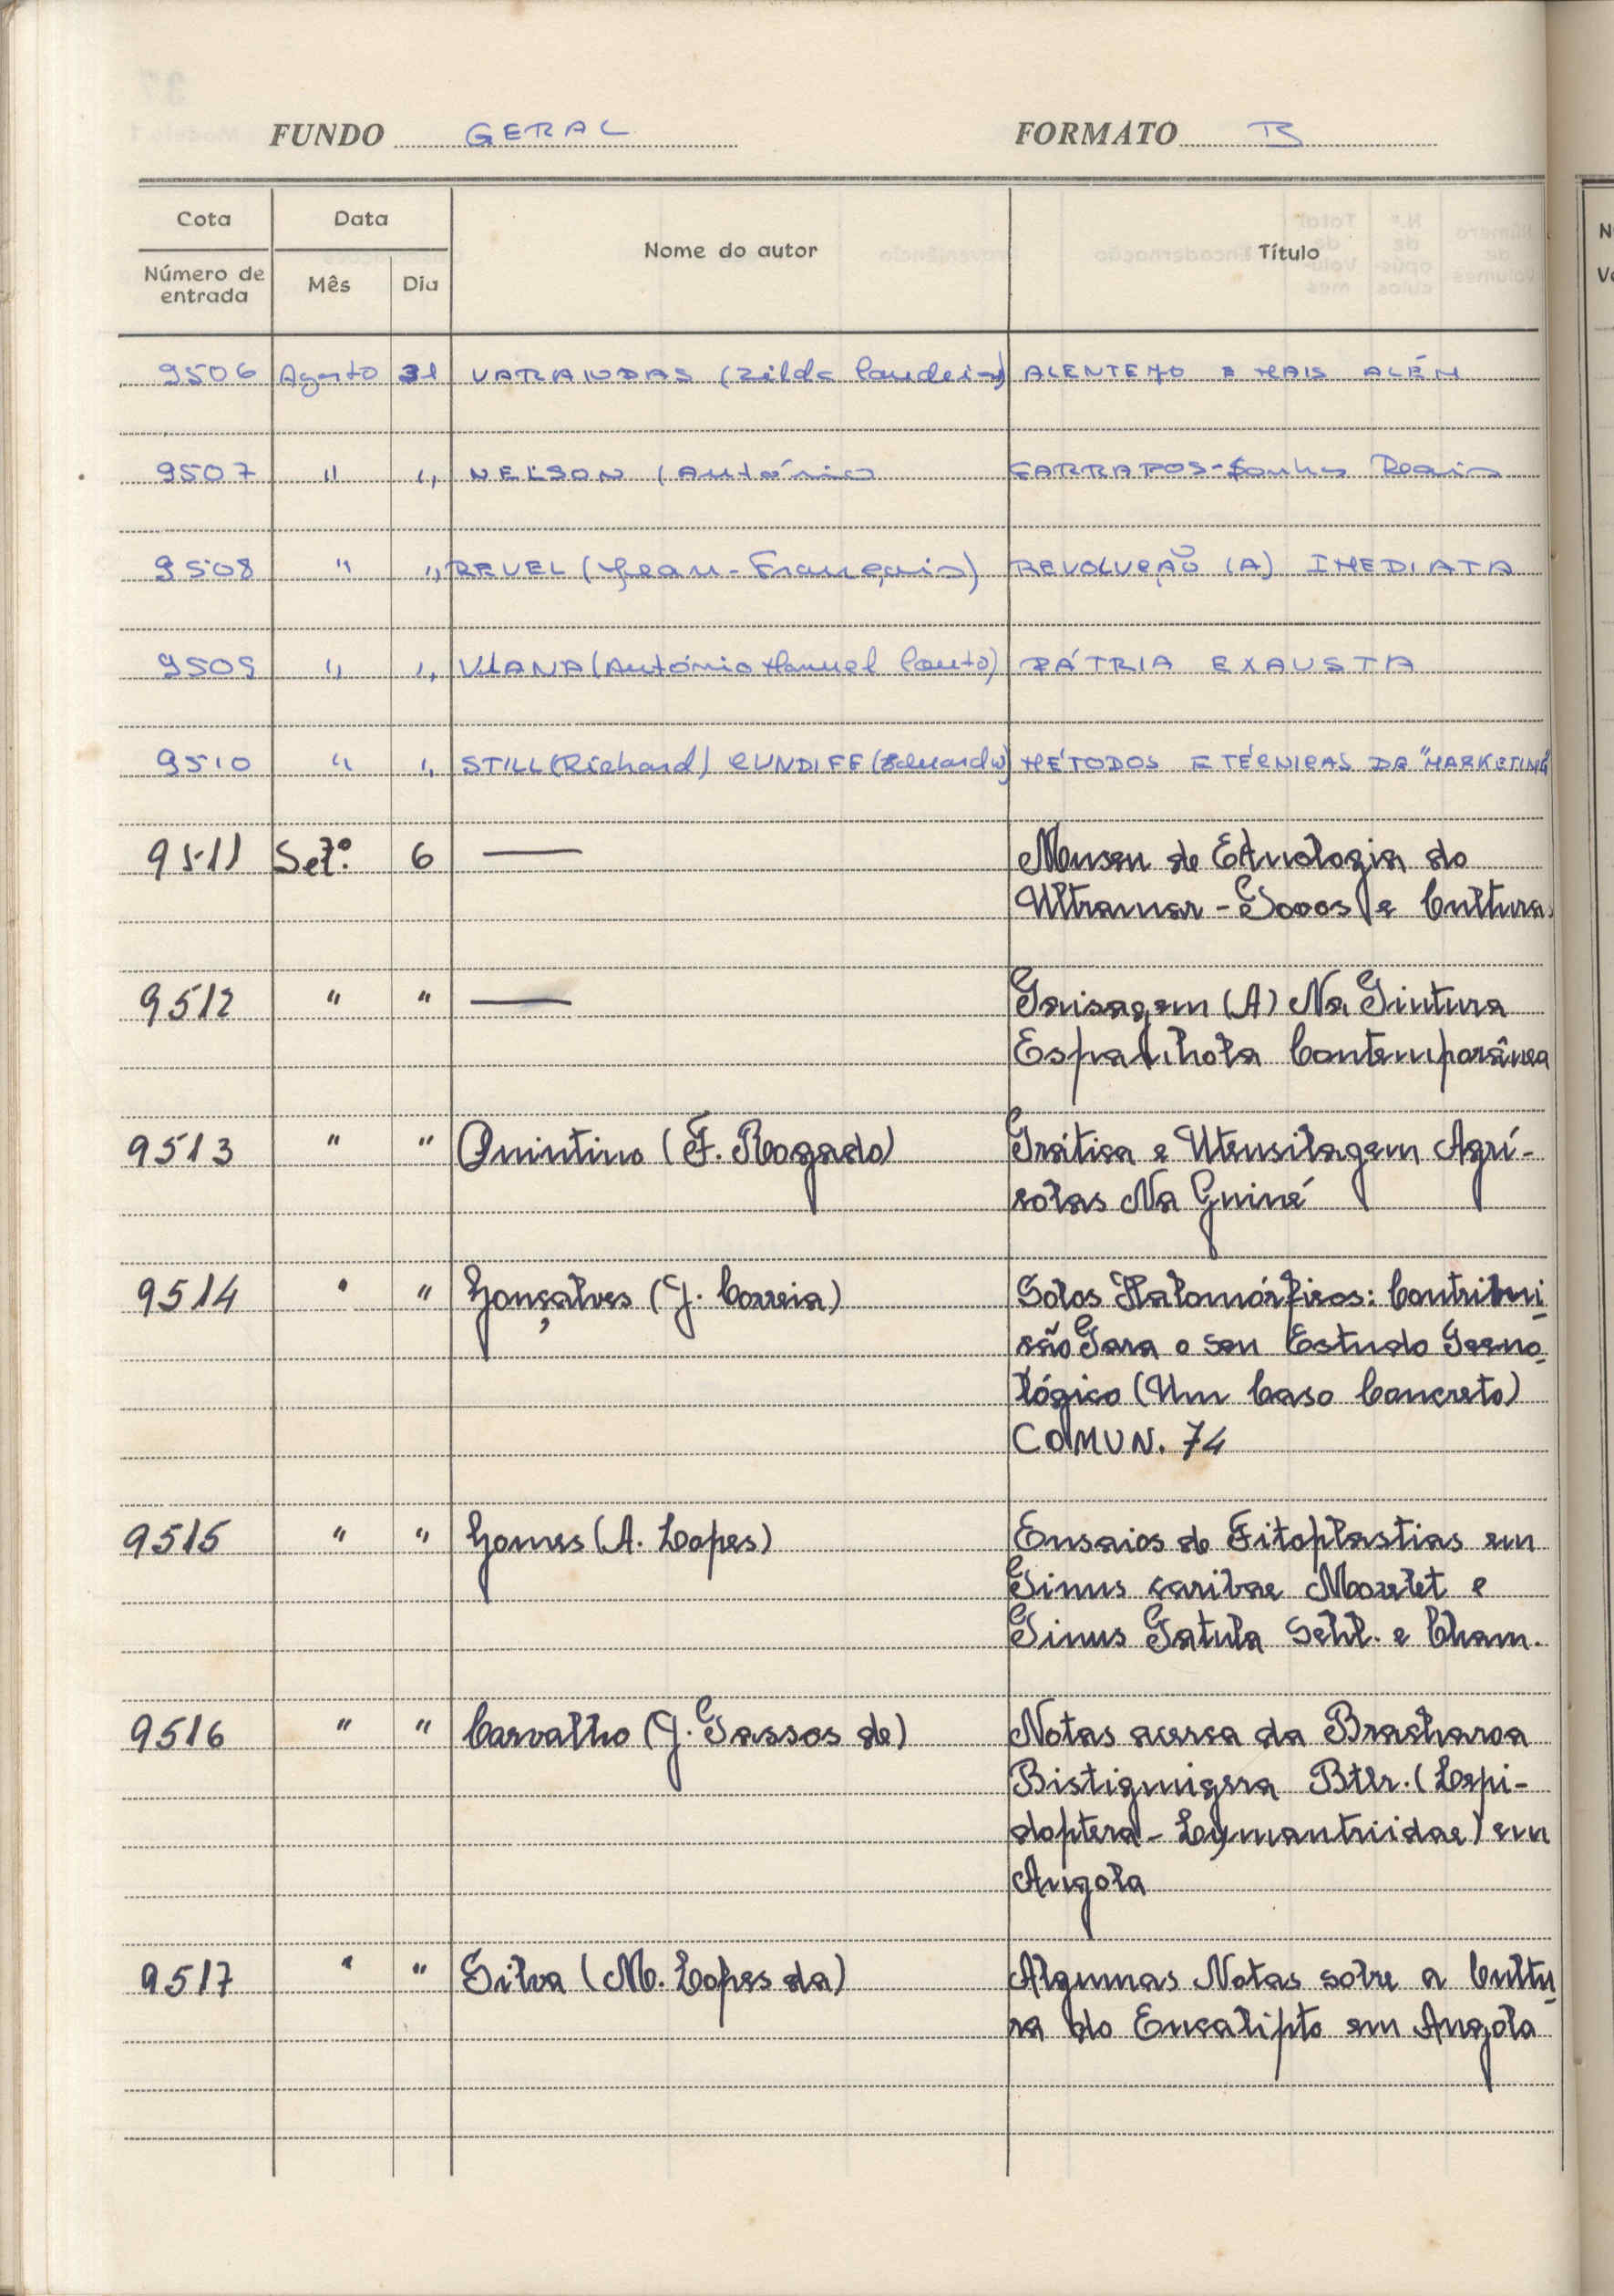 FUNDO GERAL FORMATO B
Cota Data Nome do autor Título
Número de entrada Mês Dia
9506 Agosto 31 VARANDAS (Zilda Candeias) ALENTEJO E MAIS ALÉM
9507 " " NELSON (António FARRAPOS-Sonhos Reais
9508 " " REVEL (Jean-François) REVOLUÇÃO (A) IMEDIATA
9509 " " VIANA (António Manuel Couto) PÁTRIA EXAUSTA
9510 " " STILL (Richard) CUNDIFF (Eduard W) MÉTODOS E TÉCNICAS DE "MARKETING"
9511 Set.º 6 — Museu de Etnologia do
Ultramar - Povos e Cultura
9512 " " — Paisagem (A) Na Pintura
Espanhola Contemporânea
9513 " " Quintino (F. Rogado) Prática e Utensilagem Agrí-
colas Na Guiné
9514 " " Gonçalves (J. Correia) Solos Halomórficos: Contribui-
ção Para o seu Estudo
lógico (Um Caso Concreto)
COMUN. 74
9515 " " Gomes (A. Lopes) Ensaios de Fitoplastias em
Pinus caribae Morelet e
Pinus Patula Schl. e Cham.
9516 " " Carvalho (J. Passos de) Notas acerca da Bracharoa
Bistigmigera Btlr. (Lepi-
doptera - Lymantriidae) em
Angola
9517 " " Silva (M. Lopes da) Algumas Notas sobre a Cultu-
ra do Eucalipto em Angola